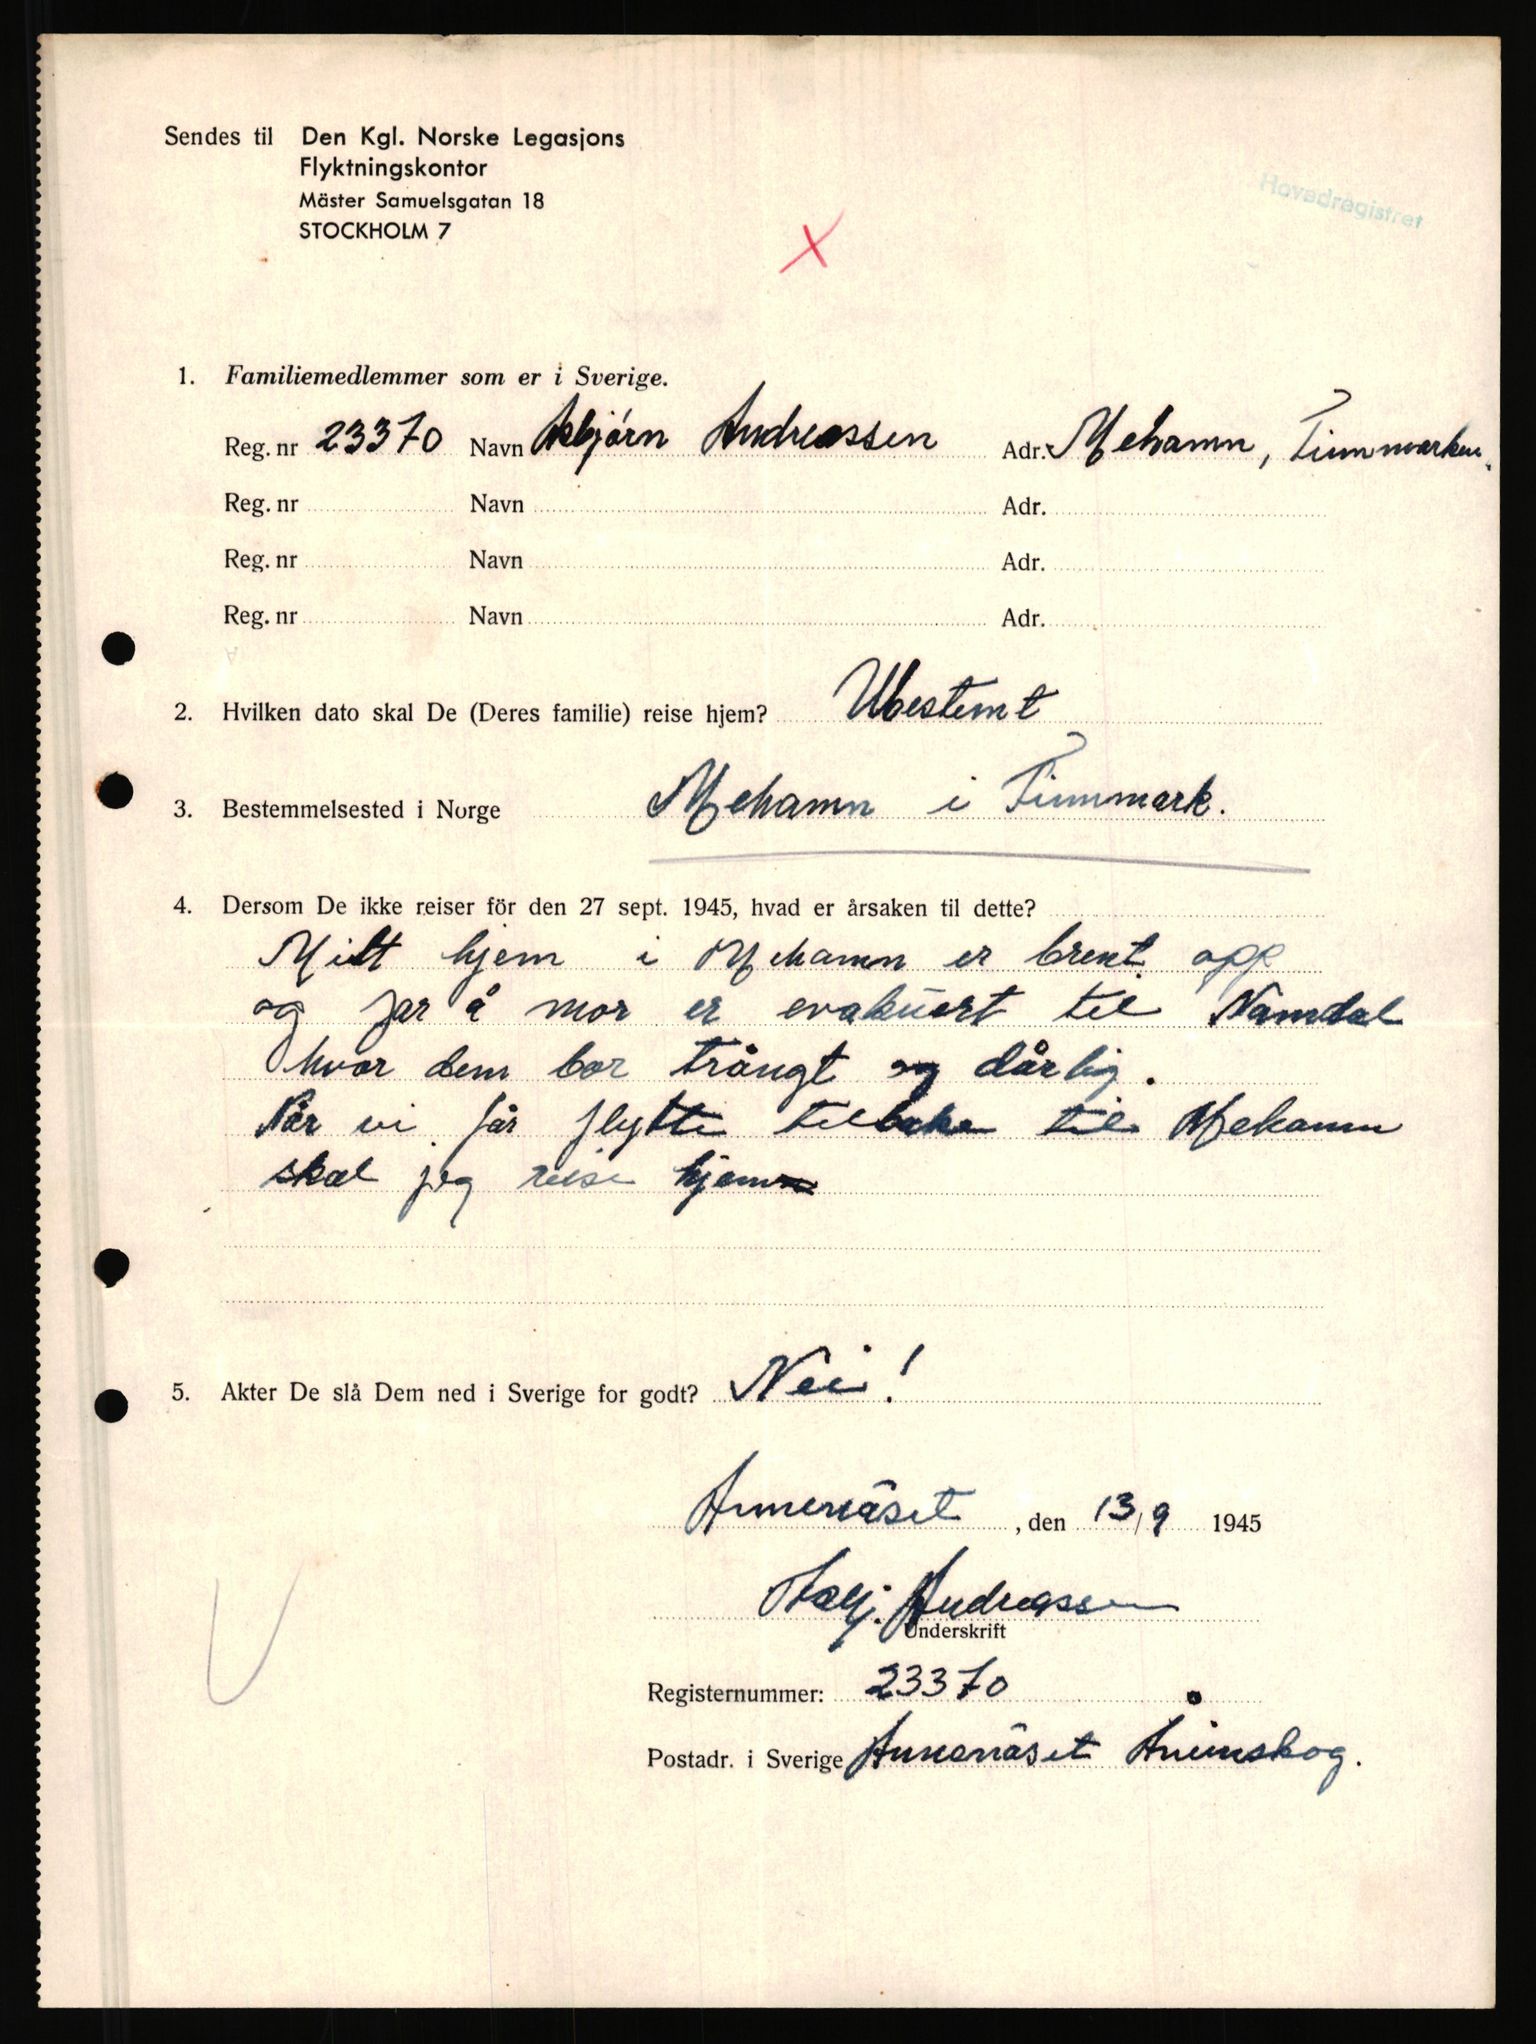 Sendes til Den Kgl. Norske Legasjons
Flyktningskontor
Mäster Samuelsgatan 18
STOCKHOLM 7
Hovedregistret
1. Familiemedlemmer som er i Sverige.
Reg. nr 23370 Navn Asbjörn Andreassen Adr. Mehamn, Finnmarken.
Reg. nr Navn Adr.
Reg. nr Navn Adr.
Reg. nr Navn Adr.
2. Hvilken dato skal De (Deres familie) reise hjem? Ubestemt
3. Bestemmelsested i Norge Mehamn i Finnmark.
4. Dersom De ikke reiser för den 27 sept. 1945, hvad er årsaken til dette?
Mitt hjem i Mehamn er brent opp
og far å mor er evakuert til Namdal
hvor dem bor trångt og dårlig.
Når vi får flytte tilbake til Mehamn
skal jeg reise hjem
5. Akter De slå Dem ned i Sverige for godt? Nei!
Annenäset, den 13/9 1945
Asbj. Andreassen
Underskrift
Registernummer: 23370
Postadr. i Sverige Annenäset Ånimskog.